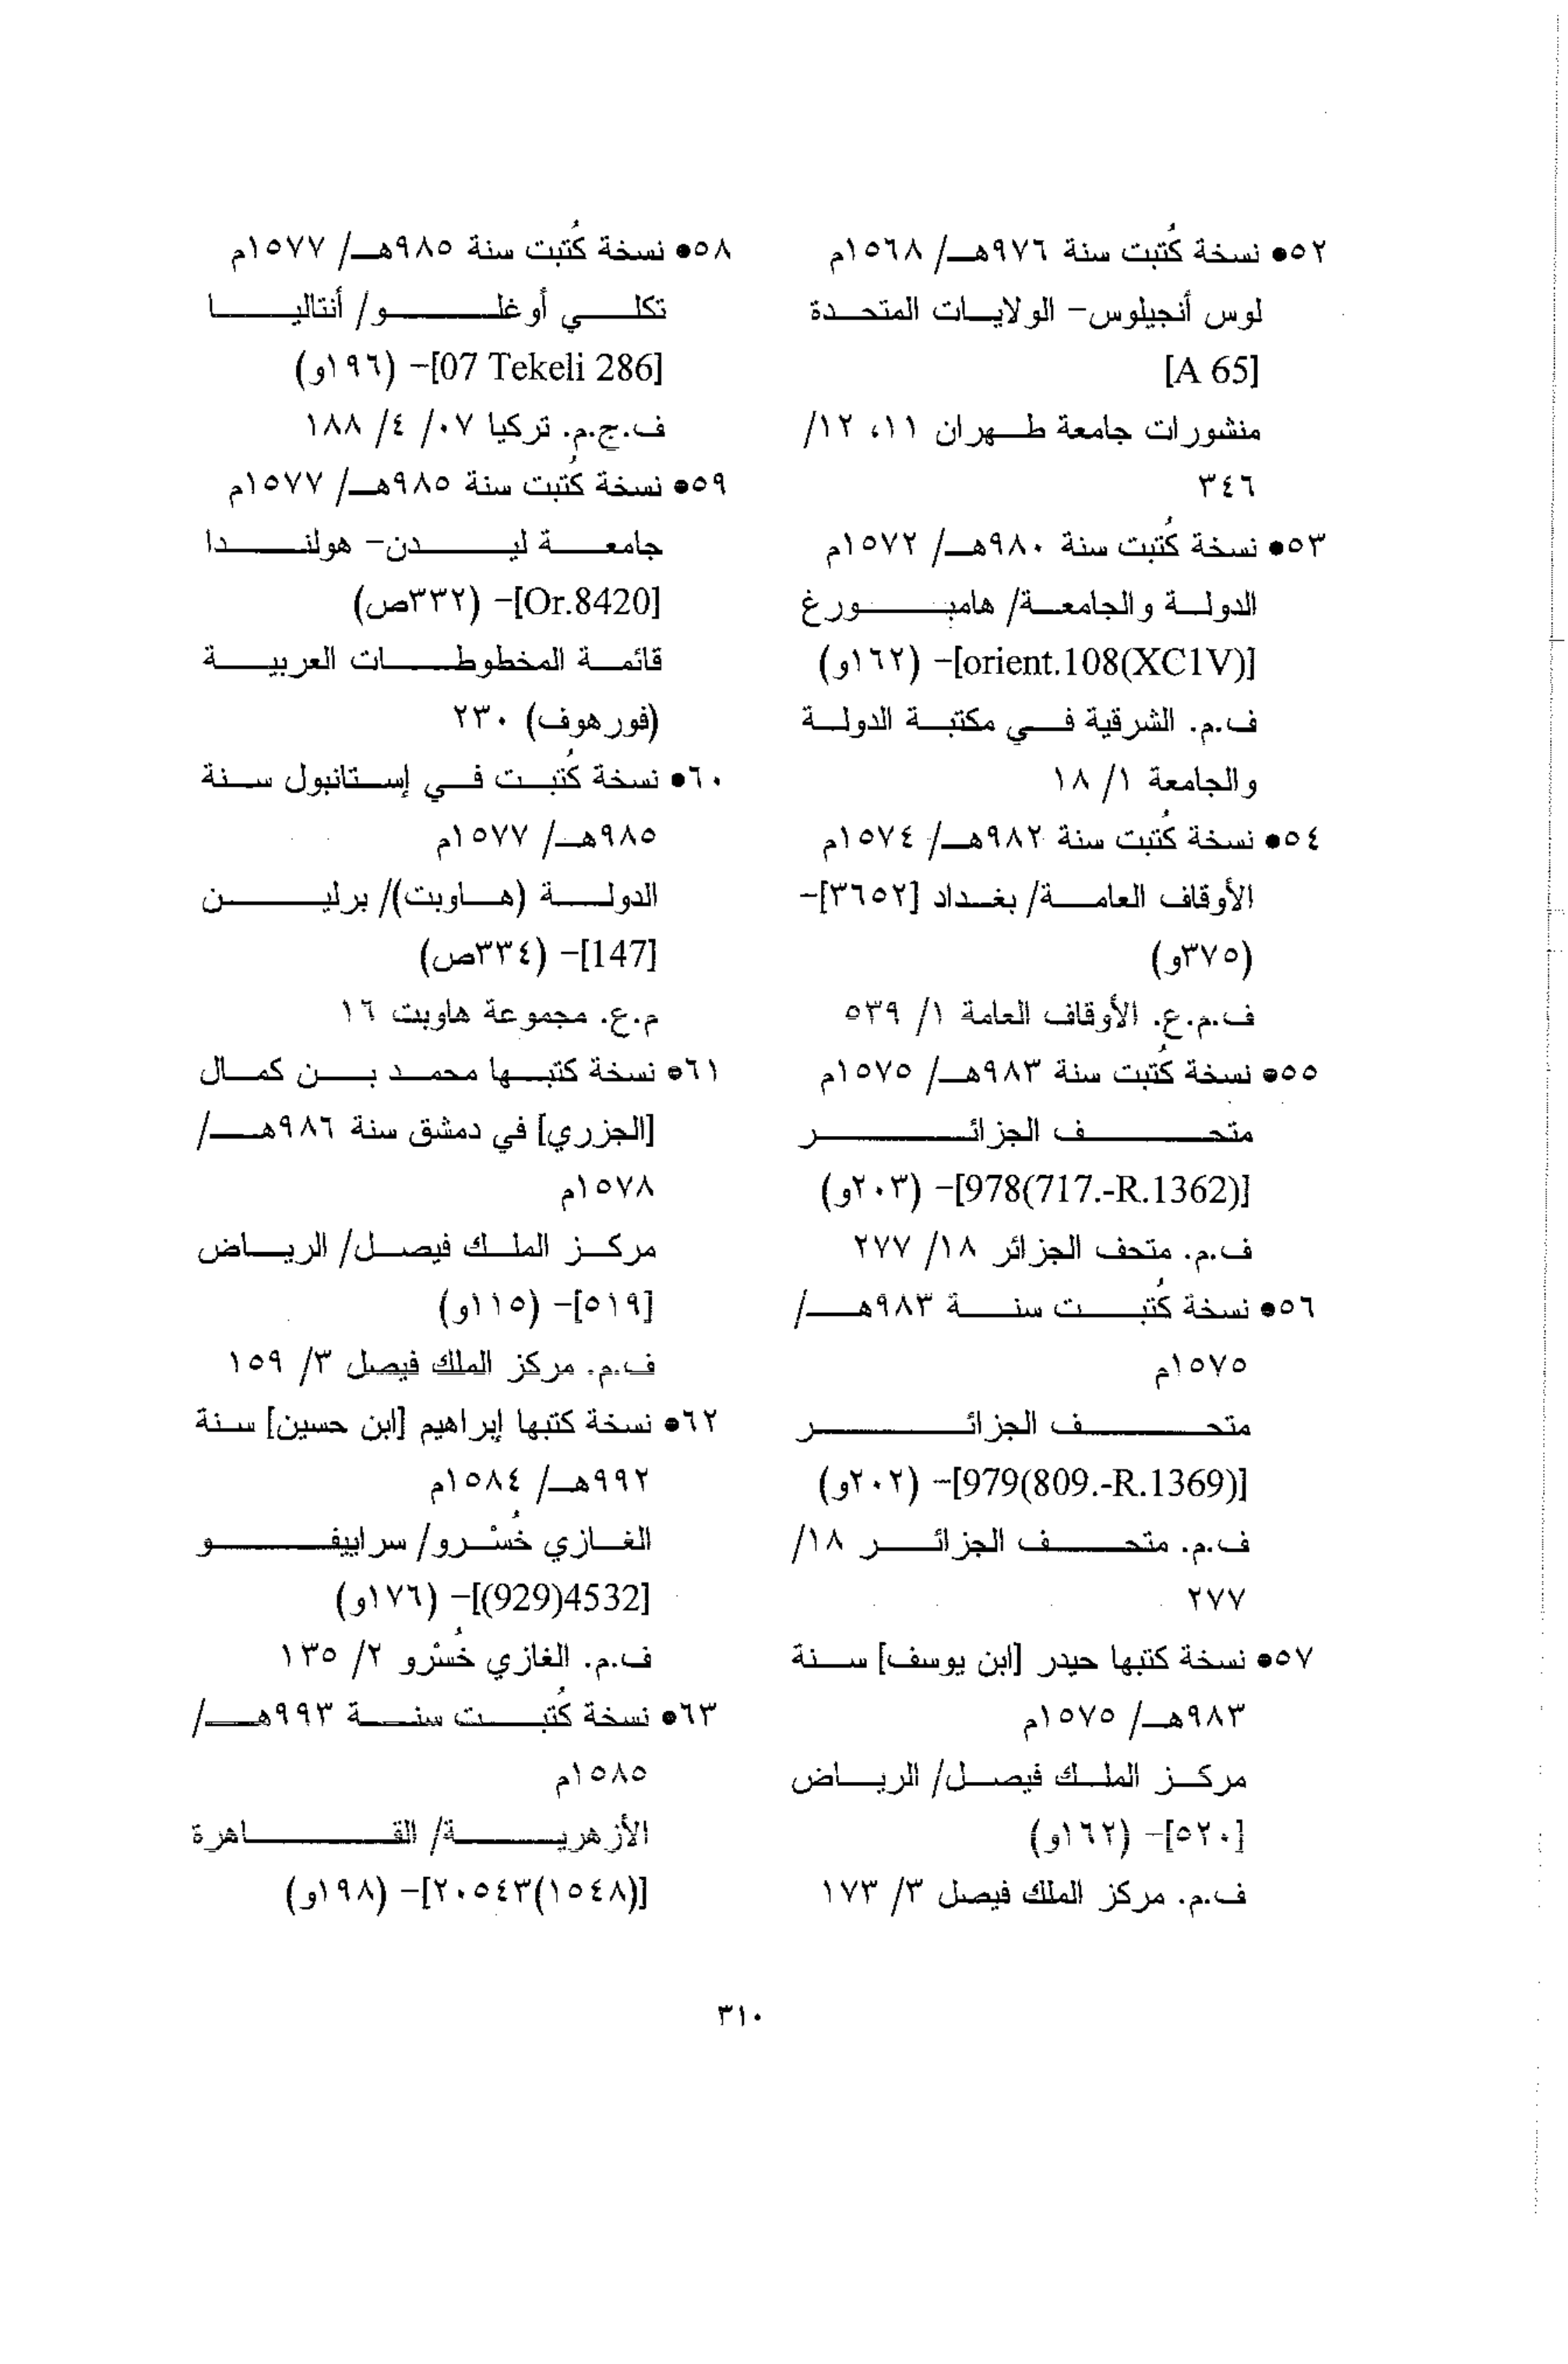 ٥٢• نسخة كُتبت سنة ٩٧٦هـ/ ١٥٦٨م
لوس أنجيلوس- الولايات المتحدة
[A 65]
منشورات جامعة طهران ١١، ١٢/
٣٤٦
٥٣• نسخة كُتبت سنة ٩٨٠هـ/ ١٥٧٢م
الدولة والجامعة/ هامبورغ
[orient.108(XC1V)]- (١٦٢و)
ف.م. الشرقية في مكتبة الدولة
والجامعة ١/ ١٨
٥٤• نسخة كُتبت سنة ٩٨٢هـ/ ١٥٧٤م
الأوقاف العامة/ بغداد [٣٦٥٢]-
(٣٧٥و)
ف.م.ع. الأوقاف العامة ١/ ٥٣٩
٥٥• نسخة كُتبت سنة ٩٨٣هـ/ ١٥٧٥م
متحف الجزائر
[978(717.-R.1362)]- (٢٠٣و)
ف.م. متحف الجزائر ١٨/ ٢٧٧
٥٦• نسخة كُتبت سنة ٩٨٣هـ/
١٥٧٥م
متحف الجزائر
[979(809.-R.1369)]- (٢٠٢و)
ف.م. متحف الجزائر ١٨/
٢٧٧
٥٧• نسخة كتبها حيدر [ابن يوسف] سنة
٩٨٣هـ/ ١٥٧٥م
مركز الملك فيصل/ الرياض
[٥٢٠]- (١٦٢و)
ف.م. مركز الملك فيصل ٣/ ١٧٣
٥٨• نسخة كُتبت سنة ٩٨٥هـ/ ١٥٧٧م
تكلي أوغلو/ أنتاليا
[07 Tekeli 286]- (١٩٦و)
ف.ج.م. تركيا ٠٧/ ٤/ ١٨٨
٥٩• نسخة كُتبت سنة ٩٨٥هـ/ ١٥٧٧م
جامعة ليدن- هولندا
[Or.8420]- (٣٣٢ص)
قائمة المخطوطات العربية
(فورهوف) ٢٣٠
٦٠• نسخة كُتبت في إستانبول سنة
٩٨٥هـ/ ١٥٧٧م
الدولة (هاوبت)/ برلين
[147]- (٣٣٤ص)
م.ع. مجموعة هاوبت ١٦
٦١• نسخة كتبها محمد بن كمال
[الجزري] في دمشق سنة ٩٨٦هـ/
١٥٧٨م
مركز الملك فيصل/ الرياض
[٥١٩]- (١١٥و)
ف.م. مركز الملك فيصل ٣/ ١٥٩
٦٢• نسخة كتبها إبراهيم [ابن حسين] سنة
٩٩٢هـ/ ١٥٨٤م
الغازي خُسْرو/ سراييفو
[4532(929)]- (١٧٦و)
ف.م. الغازي خُسْرو ٢/ ١٣٥
٦٣• نسخة كُتبت سنة ٩٩٣هـ/
١٥٨٥م
الأزهرية/ القاهرة
[(١٥٤٨)٢٠٥٤٣]- (١٩٨و)
٣١٠